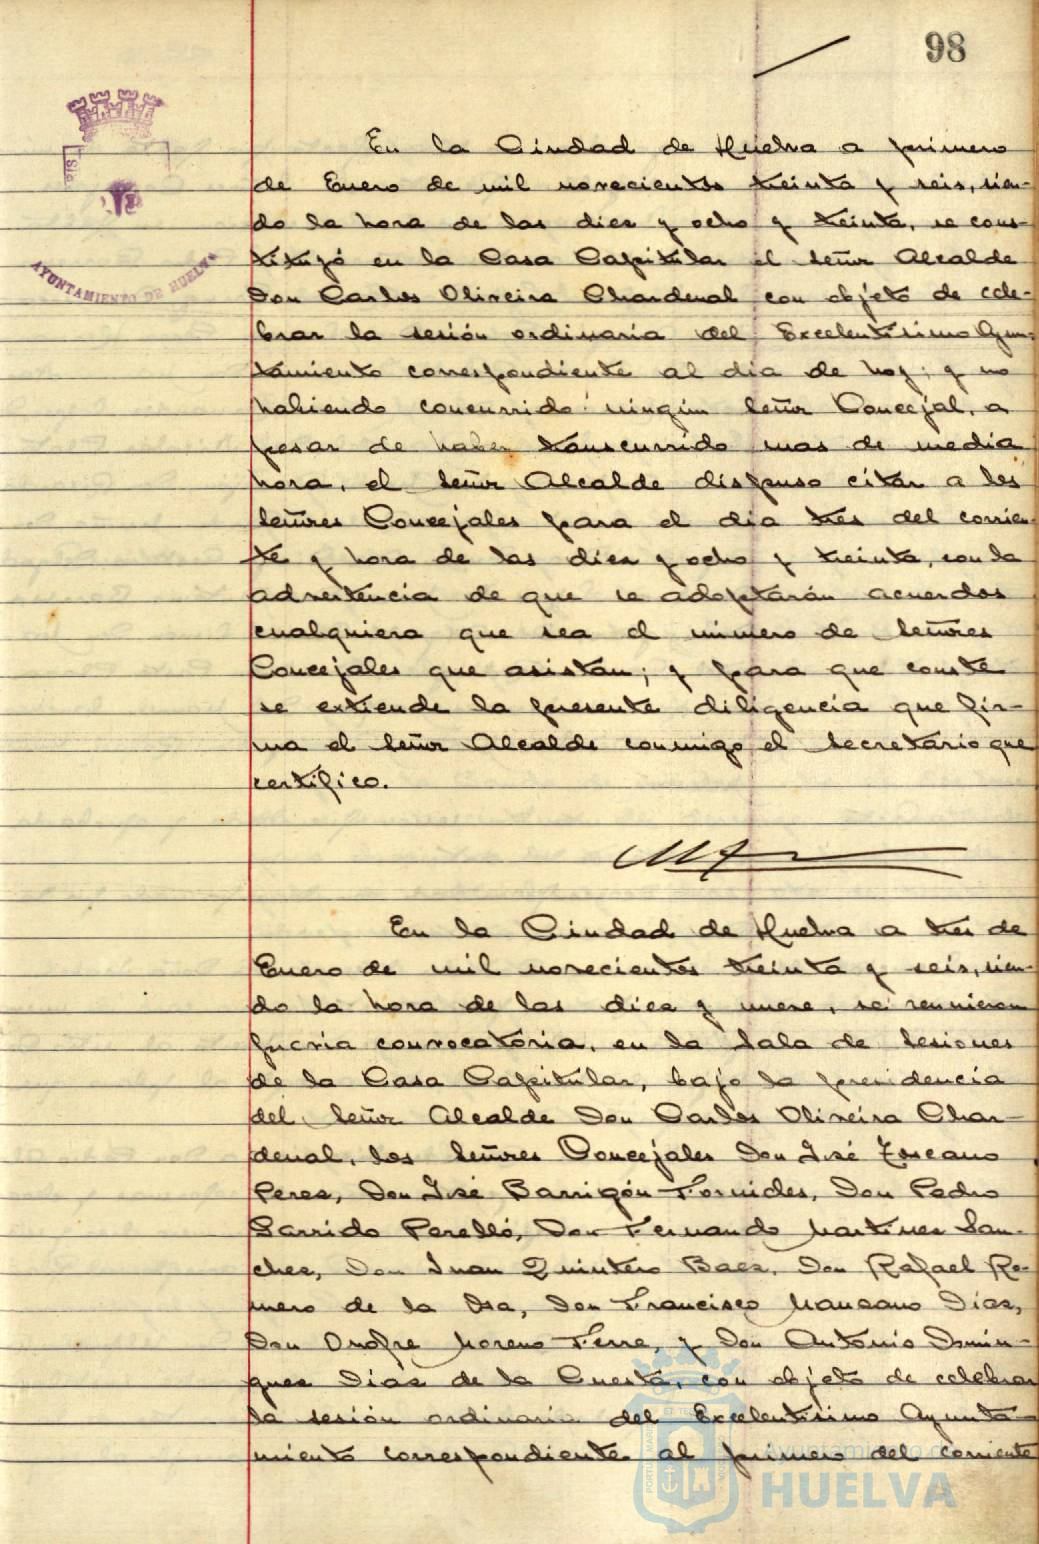 98
AYUNTAMIENTO DE HUELVA
En la Ciudad de Huelva a primero
de Enero de mil novecientos treinta y seis, sien-
do la hora de las diez y ocho y treinta, se cons-
tituyó en la Casa Capitular el Señor Alcalde
Don Carlos Oliveira Chardenal con objeto de cele-
brar la sesión ordinaria del Excelentísimo Ayun-
tamiento correspondiente al dia de hoy; y no
habiendo concurrido ningún Señor Concejal, a
pesar de haber transcurrido mas de media
hora, el Señor Alcalde dispuso citar a los
Señores Concejales para el dia tres del corrien-
te y hora de las diez y ocho y treinta, con la
advertencia de que se adoptarán acuerdos
cualquiera que sea el número de Señores
Concejales que asistan; y para que conste
se extiende la presente diligencia que fir-
ma el Señor Alcalde conmigo el Secretario que
certifico.
En la Ciudad de Huelva a tres de
Enero de mil novecientos treinta y seis, sien-
do la hora de las diez y nueve, se reunieron
previa convocatoria, en la Sala de Sesiones
de la Casa Capitular, bajo la presidencia
del Señor Alcalde Don Carlos Oliveira Char-
denal, los Señores Concejales Don José Toscano
Perez, Don José Barrigón Fornides, Don Pedro
Garrido Perelló, Don Fernando Martinez San-
chez, Don Juan Quintero Baez, Don Rafael Ro-
mero de la Osa, Don Francisco Manzano Diaz,
Don Onofre Moreno Ferre, y Don Antonio Domin-
guez Diaz de la Cuesta, con objeto de celebrar
la sesión ordinaria del Excelentisimo Ayunta-
miento correspondiente al primero del corriente
Ayuntamiento de
HUELVA